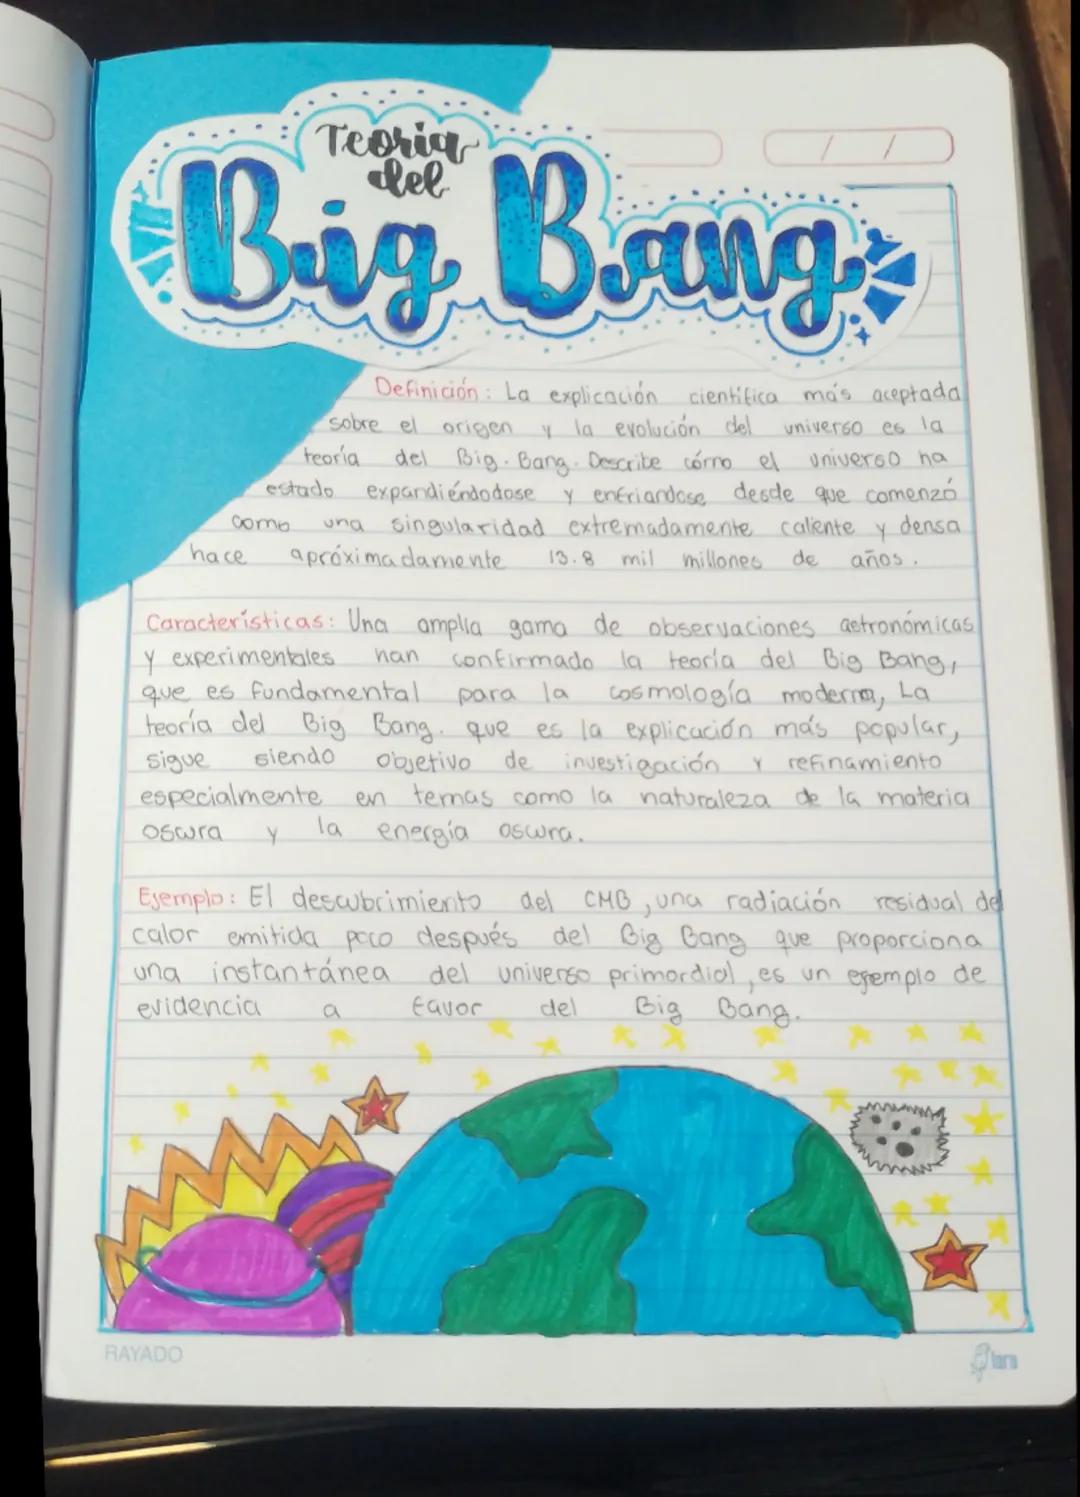 Teoria
del
Big Bang
Definición: La explicación científica más aceptada
sobre el origen y la evolución del universo es la
teoría del Big. Bang. Describe cómo el universo ha
estado expandiéndodose y enfriandose desde que comenzó
como una singularidad extremadamente caliente y densa
hace apróximadamente 13.8 mil millones de años.
Características: Una amplia gama de observaciones astronómicas
y experimentales han confirmado la teoría del Big Bang,
que es fundamental para la cosmología moderna, La
teoría del Big Bang. que es la explicación más popular,
sigue siendo objetivo de investigación y refinamiento
especialmente en temas como la naturaleza de la materia
oscura y la energía oscura.
Ejemplo: El descubrimiento del CMB, una radiación residual del
calor emitida poco después del Big Bang que proporciona
una instantánea del universo primordial, es un ejemplo de
evidencia a favor del Big Bang.
RAYADO